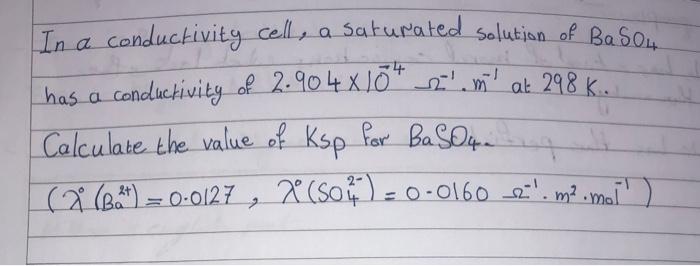 In a conductivity cell, a saturated solution of BaSO₄
has a conductivity of 2.904 × 10⁻⁴ Ω⁻¹.m⁻¹ at 298 K..
Calculate the value of Ksp for BaSO₄.
(λ°(Ba²⁺) = 0.0127 , λ°(SO₄²⁻) = 0.0160 Ω⁻¹.m².mol⁻¹)